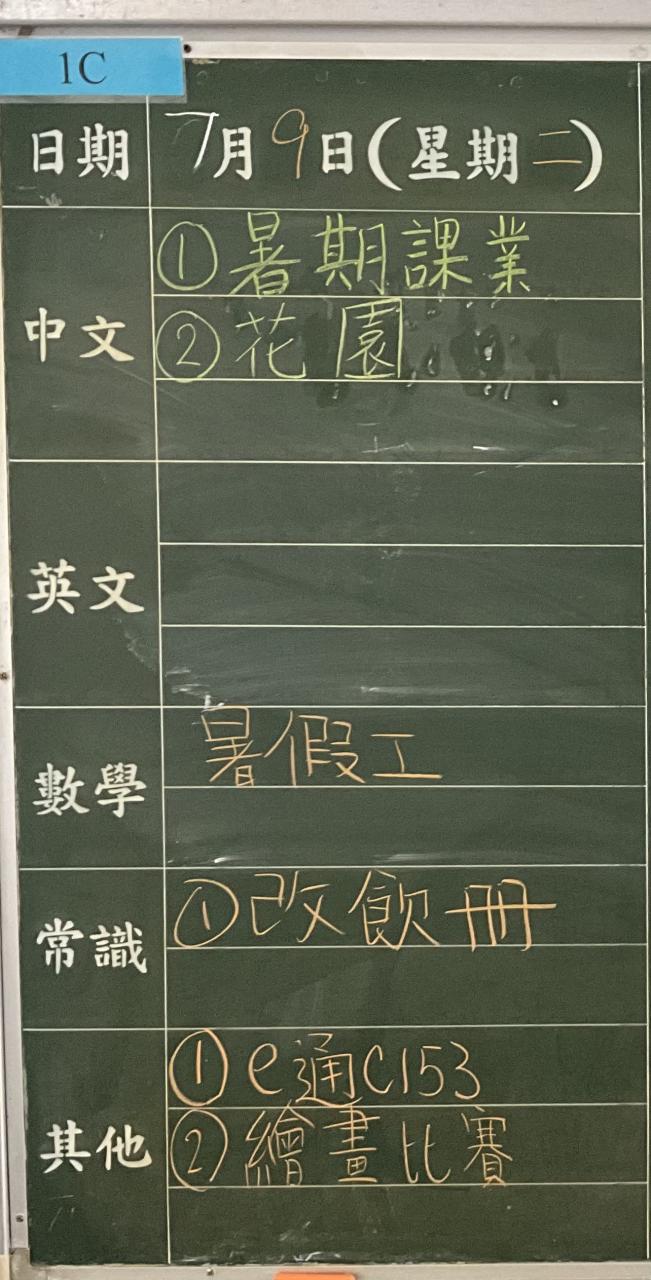 1C
日期 7月9日(星期二)
中文
①暑期課業
②花園
英文
數學
暑假工
常識
①改飲冊
其他
①e通C153
②繪畫比賽